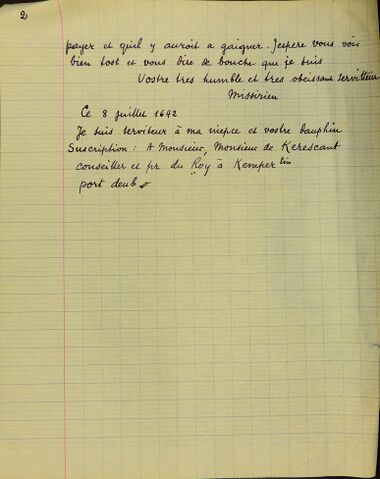 2
payer et qu'il y auroit a gaigner. Jespere vous voir
bien tost et vous dire de bouche que je suis
Vostre tres humble et tres obeissant serviteur
Missirien
Ce 8 juillet 1642
Je suis serviteur à ma niepce et vostre dauphin
Suscription : A Monsieur, Monsieur de Kerescant
conseiller et pr du Roy à Kemper tin
port deub